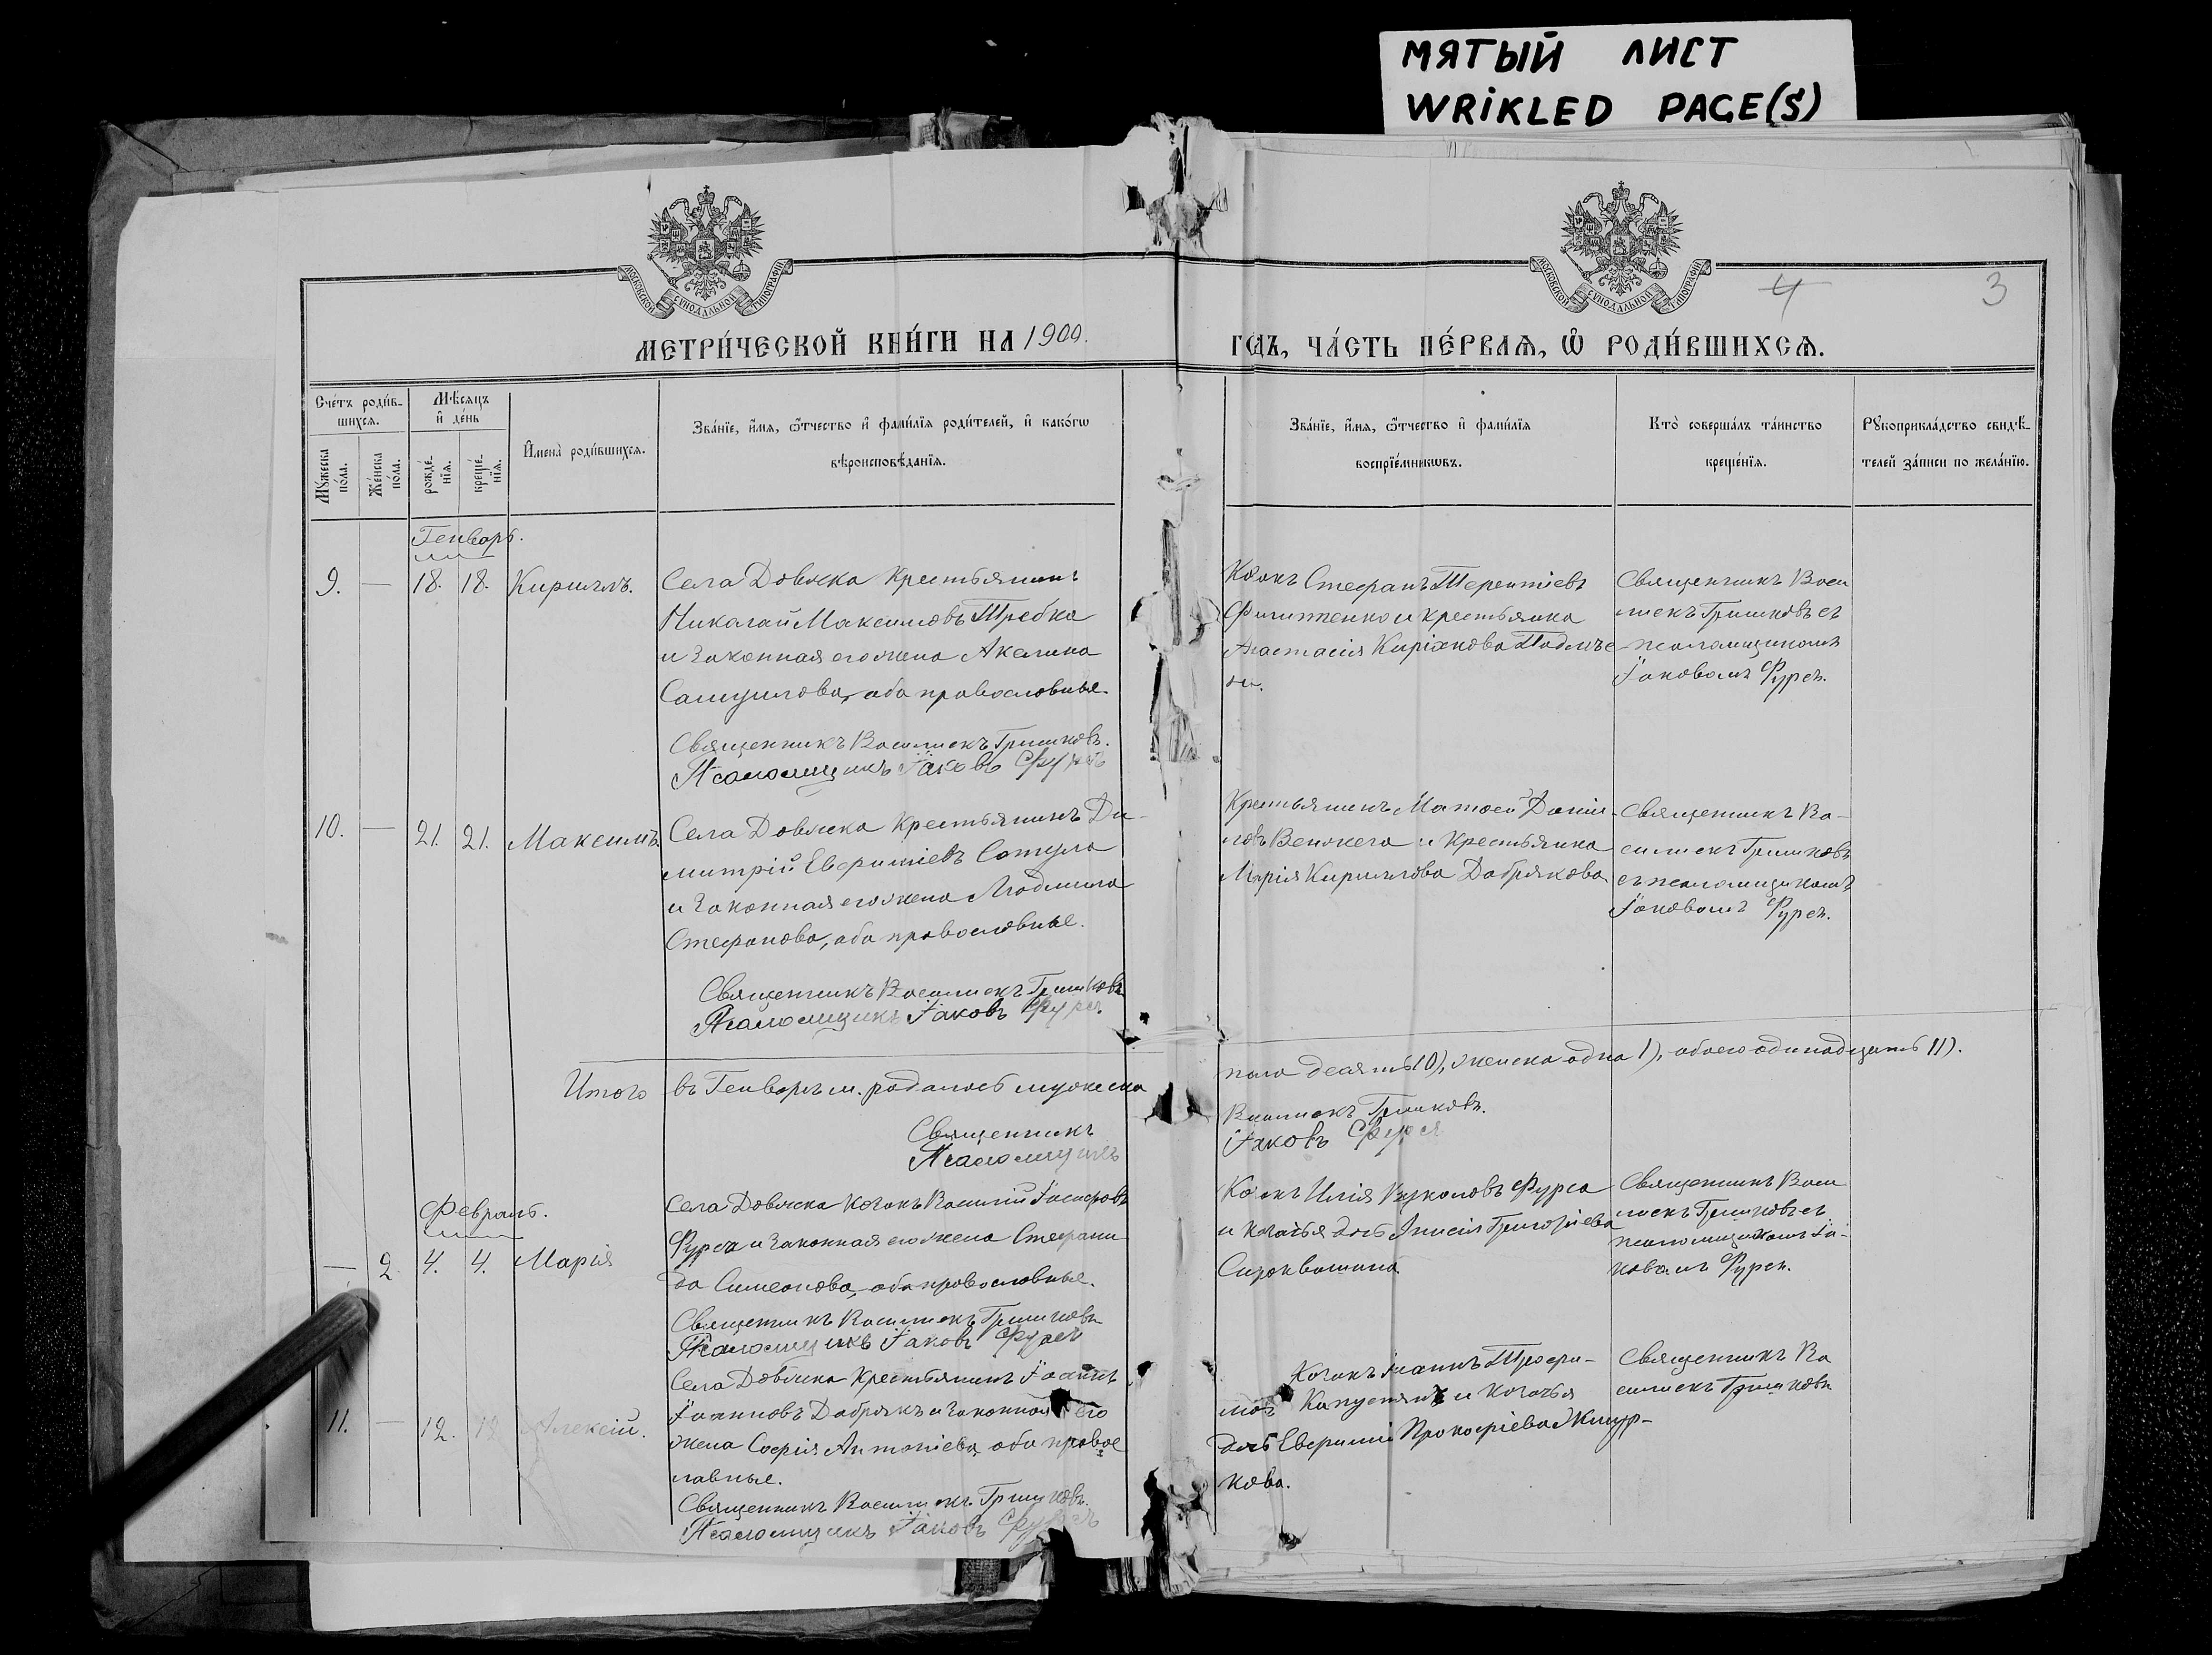 МЯТЫЙ ЛИСТ
WRIKLED PAGE(S)
МОСКОВСКОЙ СѴНОДАЛЬНОЙ ТИПОГРАФІИ
МОСКОВСКОЙ СѴНОДАЛЬНОЙ ТИПОГРАФІИ
4 3
МЕТРИ́ЧЕСКОЙ КНИ́ГИ НА 1900.
ГОДЪ, ЧА́СТЬ ПЕ́РВАЯ, Ѡ РОДИ́ВШИХСЯ.
Сче́тъ роди́в-
шихся.
Мꙋ́жеска
по́ла.
Же́нска
по́ла.
Мѣ́сяцъ
и҆ де́нь
рожде́-
нїя.
креще́-
нїя.
И҆мена̀ роди́вшихся.
Зва́нїе, и҆́мя, ѻ҆́тчество и҆ фами́лїя роди́телей, и҆ како́гѡ
вѣроисповѣ́данїя.
Зва́нїе, и҆́мя, ѻ҆́тчество и҆ фами́лїя
воспрїе́мникѡвъ.
Кто̀ соверша́лъ та́инство
креще́нїя.
Рꙋкоприкла́дство свидѣ́-
телей за́писи по жела́нїю.
Генварь.
9. — 18. 18. Кириллъ.
Села Довжека Крестьянинъ
Николай Максимовъ Требка
и законная его жена Акелина
Самуилова, оба православные.
Священникъ Василискъ Гришковъ.
Псаломщикъ Іаковъ Фурса
Козакъ Стефанъ Терентіевъ
Филипенко и крестьянка
Анастасія Киріакова
Священникъ Васи
лискъ Гришковъ съ
псаломщикомъ
Іаковомъ Фурсъ.
10. — 21. 21. Максимъ
Села Довжека Крестьянинъ Ди-
митрій Евфиміевъ Сотула
и законная его жена Людмила
Стефанова, оба православные.
Священникъ Василискъ Гришковъ
Псаломщикъ Іаковъ Фурса
Крестьянинъ Матвей Даніи-
ловъ и Крестьянка
Марія Кириллова Добрякова.
Священникъ Ва-
силискъ Гришковъ
съ псаломщикомъ
Іаковомъ Фурсъ.
Итого въ Генварѣ м. родилось мужеска
пола десять 10), женска одна 1), обоего одинадцать 11).
Священникъ Василискъ Гришковъ.
Псаломщикъ Іаковъ Фурса
Февраль.
— 2. 4. 4. Марія
Села Довжека Козакъ Василій Іосифовъ
Фурса и законная его жена Стефани
да Симеонова, оба православные.
Священникъ Василискъ Гришковъ
Псаломщикъ Іаковъ Фурса
Козакъ Илія Фурса
и козачья дочь Григоріева
Сироквашина
Священникъ Васи
лискъ Гришковъ съ
псаломщикомъ Іа-
ковомъ Фурсъ.
11. — 12. 12 Алексій.
Села Довжека Крестьянинъ Іоаннъ
Іоанновъ Добрякъ и законная его
жена Софія Антоніева, оба правос
лавные.
Священникъ Василискъ Гришковъ.
Псаломщикъ Іаковъ Фурса
Козакъ Іоаннъ Трофи-
мовъ Капустянъ и козачья
дочь Евфимія Прокофіева Жмур-
кова.
Священникъ Ва
силискъ Гришковъ